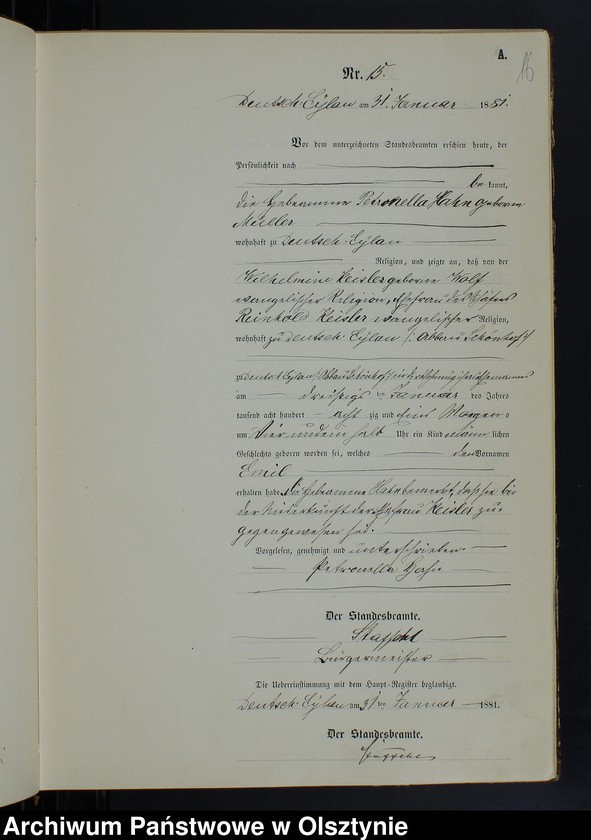 A.
16
Nr. 15.
Deutsch Eylau am 31. Januar 1881.
Vor dem unterzeichneten Standesbeamten erschien heute, der
Persönlichkeit nach
be kannt,
die Hebeamme Petronella Hahn geborene
Müller
wohnhaft zu Deutsch-Eylau
Religion, und zeigte an, daß von der
Wilhelmine Keisler geborene Wolf
evangelischer Religion, Ehefrau des
Reinhold Keisler evangelischer Religion,
wohnhaft zu Deutsch-Eylau /: Abbau Schönhof :/
zu Deutsch Eylau /: Abbau Schönhof in der Wohnung ihres Ehemannes
am dreißigsten Januar des Jahres
tausend acht hundert acht zig und eins Morgens
um vier und ein halb Uhr ein Kind männ lichen
Geschlechts geboren worden sei, welches den Vornamen
Emil
erhalten habe. Die Hebeamme Hahn bemerkt, daß sie bei
der Niederkunft der Ehefrau Keisler zu-
gegen gewesen sei.
Vorgelesen, genehmigt und unterschrieben.
Petronella Hahn
Der Standesbeamte.
Bürgermeister
Die Uebereinstimmung mit dem Haupt-Register beglaubigt.
Deutsch-Eylau am 31ten Januar 1881.
Der Standesbeamte.
Archiwum Państwowe w Olsztynie